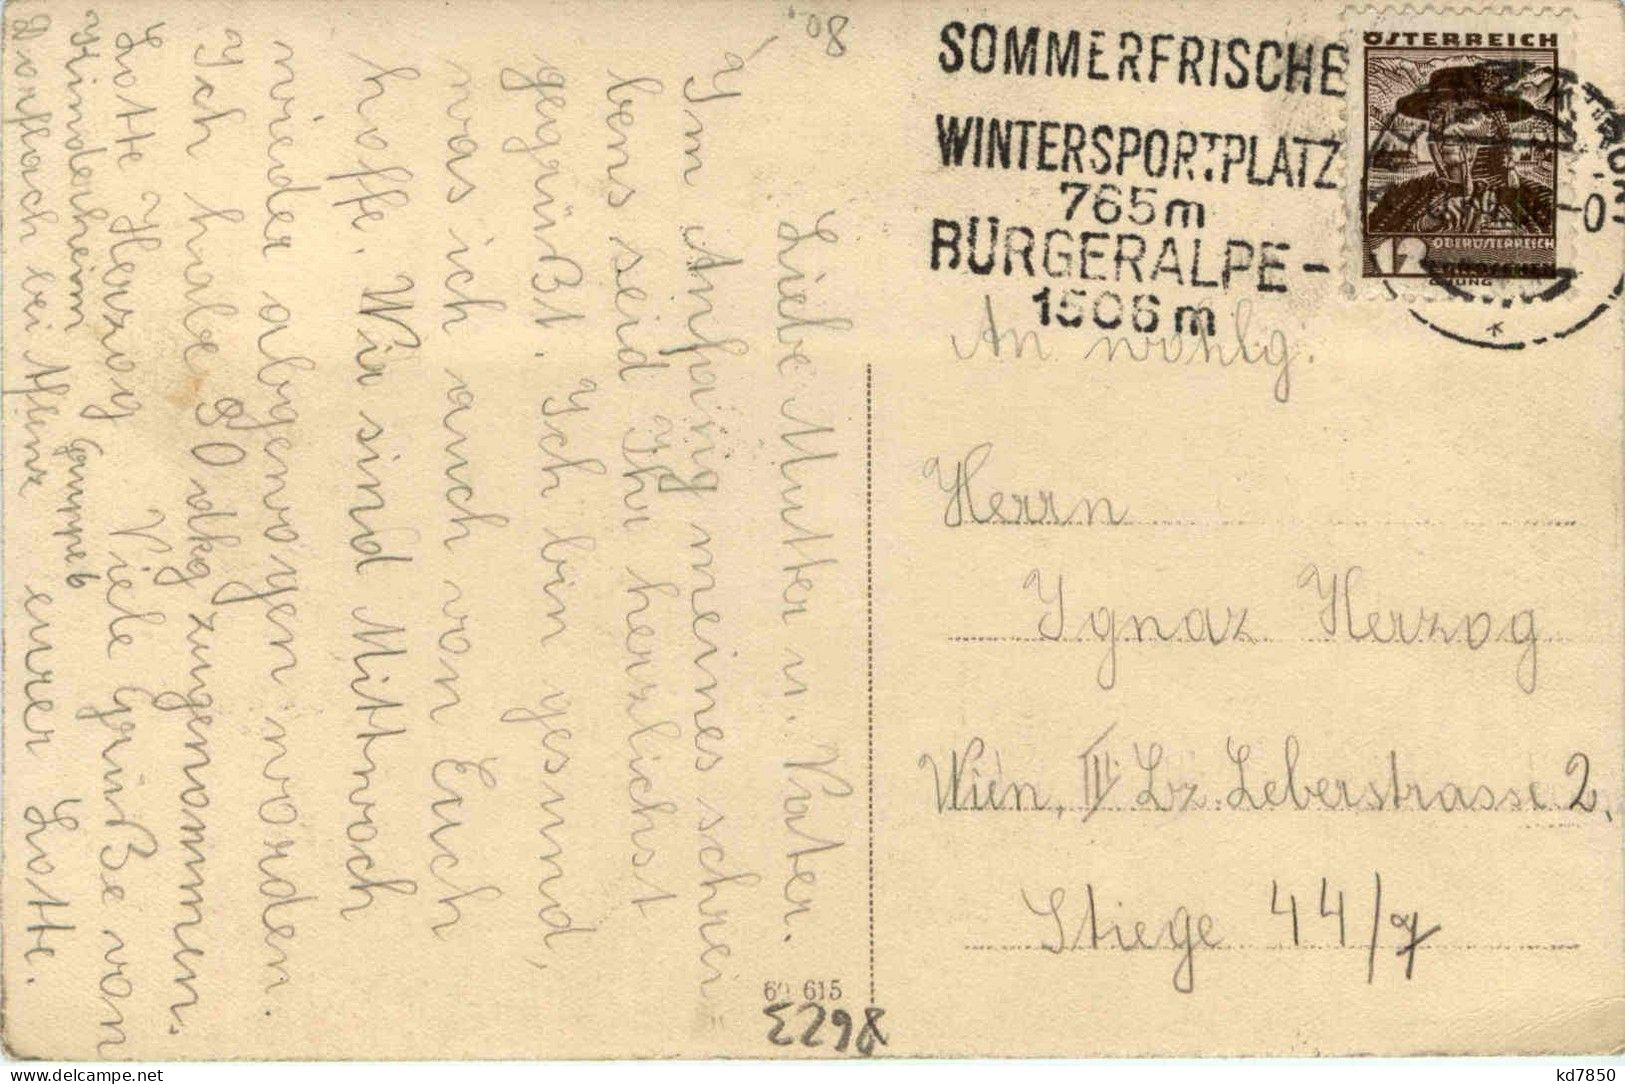 Liebe Mutter u. Vater.
Im Anfang meines schrei=
bens seid Ihr herzlichst
gegrüßt. Ich bin gesund,
was ich auch von Euch
hoffe. Wir sind Mittwoch
wieder abgewogen worden.
Ich habe 90 dkg zugenommen.
Lotte Herzog Viele Grüße von
Kinderheim Gruppe 6
Dörflach bei Aflenz eurer Lotte.
80
SOMMERFRISCHE
WINTERSPORTPLATZ
765m
BÜRGERALPE-
1506m
ÖSTERREICH
12 OBERÖSTERREICH
An wohlg.
Herrn
Ignaz Herzog
Wien, III. Bz. Leberstrasse 2,
Stiege 44/7
60 615
8623
kd7850